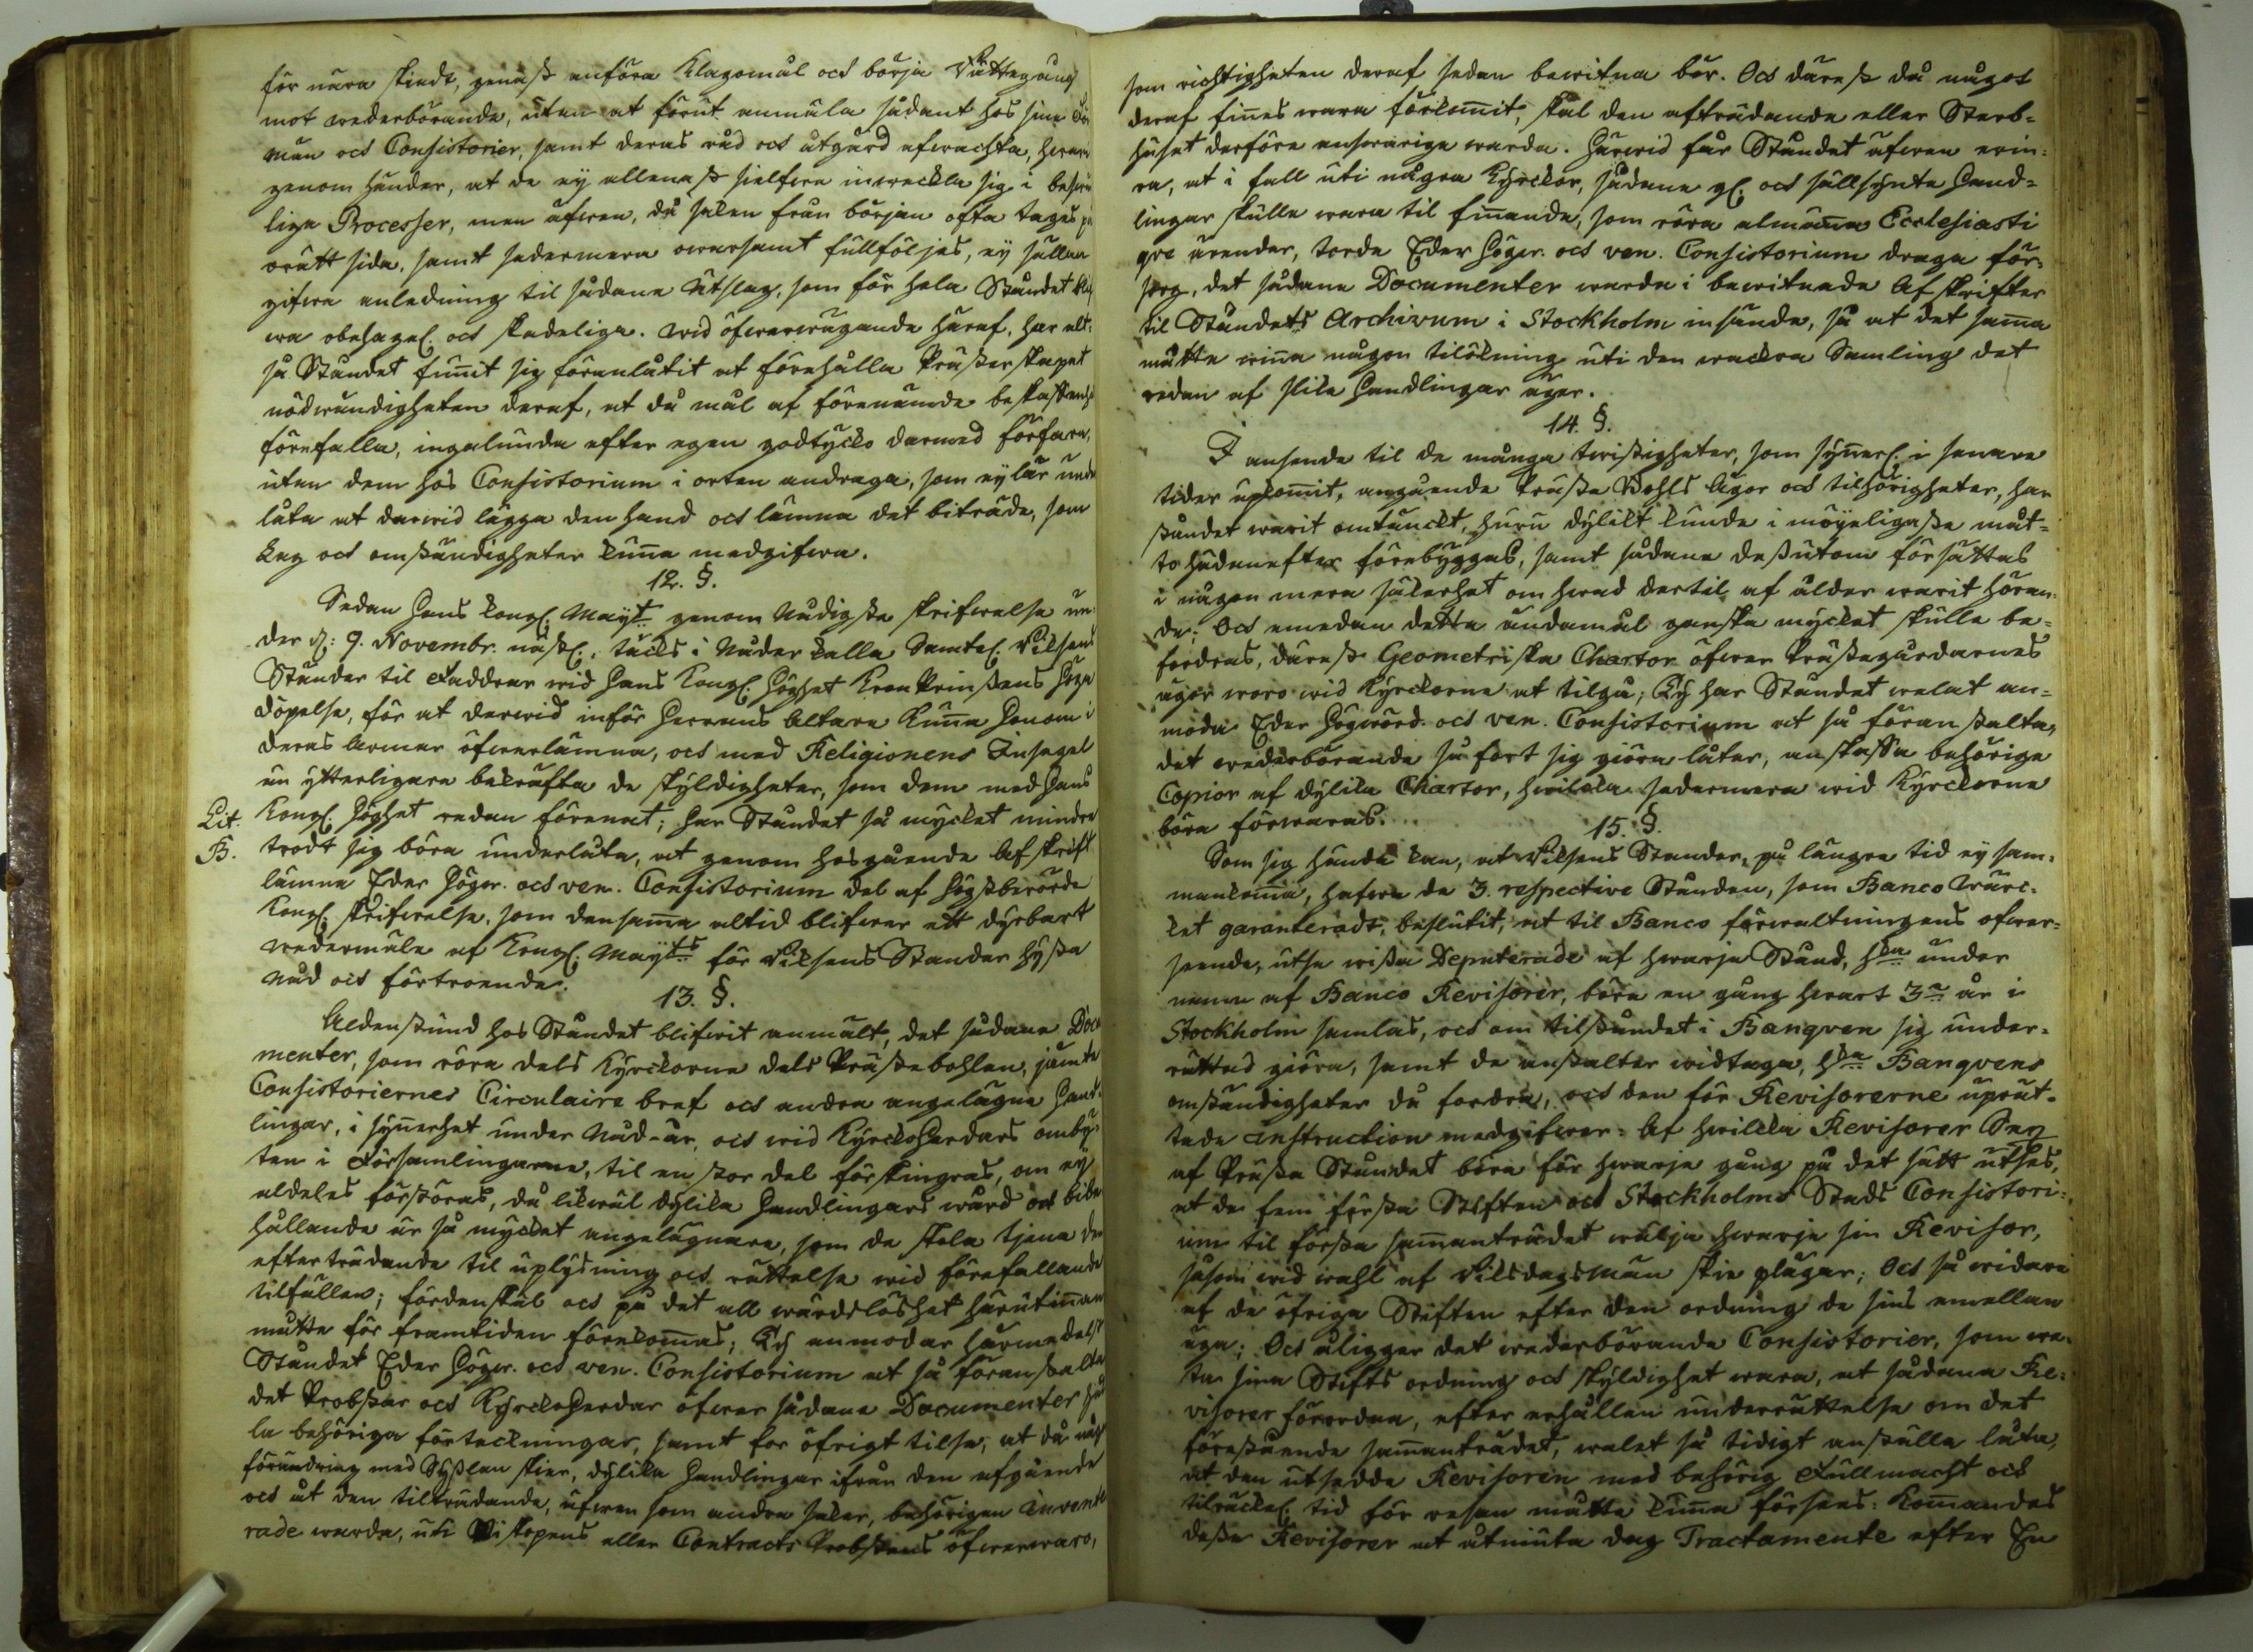 för nära skiedt, genast anföra Klagomål och börja Rättegång
mot wederbörande, utan at förut anmäla sådant hos sine
män och Consistorier, samt deras råd och åtgärd afwachta, hwari-
genom händer, at de ej allenast sielfwe inweckla sig i beswär-
lige Processer, men äfwen, då saken från början ofta tages på
orätt sida, samt sedermera owarsamt fullföljes, ej sällan
gifwa anledning til sådane Utslag, som för hela Ståndet bli-
wa obehagel. och skadelige. wid öfwerwägande häraf, har alt-
så Ståndet funnit sig föranlåtit at förehålla Prästerskapet
nödwändigheten deraf, at då mål af förenämde beskaffenhet
förefalla, ingalunda efter egen godtycko dermed förfara,
utan dem hos Consistorium i orten andraga, som ej lär under-
låta at derwid lägga den hand och lämna det biträde, som
Lag och omständigheter kunna medgifwa.
12. §.
Sedan Hans Kongl. Mayt genom Nådigste skrifwelse un-
der d: 9. Novembr. nästl., täcks i Nåder kalla Samtel. Riksens
Ständer til Faddrar wid Hans Kongl. Höghet Kron Prinsens Höga
döpelse, för at derwid inför Herrans Altare Kunna Honom i
deras Armar öfwerlämna, och med Religionens Insegel
än ytterligare bekräfta de skyldigheter, som dem med Hans
Lit. Kongl. Höghet redan förenat; har Ståndet så mycket mindre
B. trodt sig böra underlåta, at genom hosgående Afskrift
lämna Eder Högw. och ven. Consistorium del af Högstberörde
Kongl. skrifwelse, som densamma altid blifwer ett dyrbart
wedermäle af Kongl. Mayts för Riksens Ständer hysta
nåd och förtroende.
13. §.
Aldenstund hos Ståndet blifwit anmält, det sådane Docu-
menter, som röra dels Kyrckorne dels Prästebohlen, jämte
Consistoriernes Circulaire bref och andra angelägne Hand-
lingar, i synnerhet under Nåd-år, och wid KyrckoHerdars omby-
ten i Församlingarne, til en stor del förskingras, om ej
aldeles förstöras, då likwäl dylika Handlingars wård och bibe-
hållande är så mycket angelägnare, som de skola tjena den
efterträdande til uplysning och rättelse wid förefallande
tilfällen; fördenskul och på det all wårdslöshet härutinnan
måtte för framtiden förekommas; Ty anmodar härmedelst
Ståndet Eder Högw. och ven. Consistorium at så föranstalta
det Probstar och KyrckoHerdar öfwer sådane Documenter hål-
la behöriga förteckningar, samt for öfrigt tilse, at då någon
förändring med Sysslan skier, dylika Handlingar ifrån den afgående
och åt den tilträdande, äfwen som andra saker, behörigen invente-
rade warda, uti Biskopens eller Contracts Probstens öfwerwaro,
som richtigheten deraf sedan bewitna bör. Och därest då något
deraf finnes wara förkommit, skal den afträdande eller Sterb-
huset derföre answarige warda. Härwid får Ståndet äfwen erin-
ra, at i fall uti några Kyrckor, sådane gl. och sällsynte Hand-
lingar skulle wara til finnande, som röra almänna Ecclesiasti
qve ärender, torde Eder Högw. och ven. Consistorium draga för-
sorg, det sådane Documenter warda i bewitnade Afskrifter
til Ståndets Archivum i Stockholm insände, så at det samma
måtte winna någon tilökning uti den wackra Samling det
redan af slika Handlingar äger.
14. §.
I anseende til de många twistigheter, som synnerl. i senare
tider upkommit, angående Prästa Bohls Ägor och tilhörigheter, har
ståndet warit omtänckt, huru dylikt kunde i möyeligaste måt-
to hädanefter förebyggas, samt sådane dessutom försättas
i någon mera säkerhet om hwad dertil af ålder warit höran-
de; Och emedan detta ändamål ganska mycket skulle be-
fordras, därest Geometriska Chartor öfwer Prästegårdarnes
ägor woro wid Kyrckorne at tilgå; Ty har Ståndet welat an-
moda Eder Högwörd. och ven. Consistorium at så föranstalta,
det wederbörande så fort sig giöra låter, anskaffa behörige
Copior af dylika Chartor, hwilcka sedermera wid Kyrckorne
böra förwaras.
15. §.
Som sig hända kan, at Riksens Ständer, på längre tid ej sam-
mankomma, hafwa de 3. respective Stånden, som Banco Wärc-
ket garanteradt, beslutit, at til Banco förwaltningens öfwer-
seende, utse wissa Deputerade af hwarje Stånd, hka under
namn af Banco Revisorer, böra en gång hwart 3e år i
Stockholm samlas, och om tilståndet i Banqven sig under-
rättad giöra, samt de anstalter widtaga, hka Banqvens
omständigheter då fordra, och den för Revisorerne uprät-
tade instruction medgifwer: Af hwilcka Revisorer Sex
af Prästa Ståndet böra för hwarje gång på det sätt utses,
at de fem första Stiften och Stockholms Stads Consistori-
um til första sammanträdet wälja hwarje sin Revisor,
såsom wid wahl af Riksdagsmän skie plägar; Och så widare
af de öfriga Stiften efter den ordning de sins emellan
äga; Och åligger det wederbörande Consistorier, som we-
ta sina Stifts ordning och skyldighet wara, at sådane Re-
visorer förordna, efter erhållen underrättelse om det
förestående sammanträdet, walet så tidigt anställa låta,
at den utsedde Revisoren med behörig Fullmacht och
tilräckel. tid för resan måtte kunna förses: Kommandes
desse Revisorer at åtniuta dag Tractamente efter En